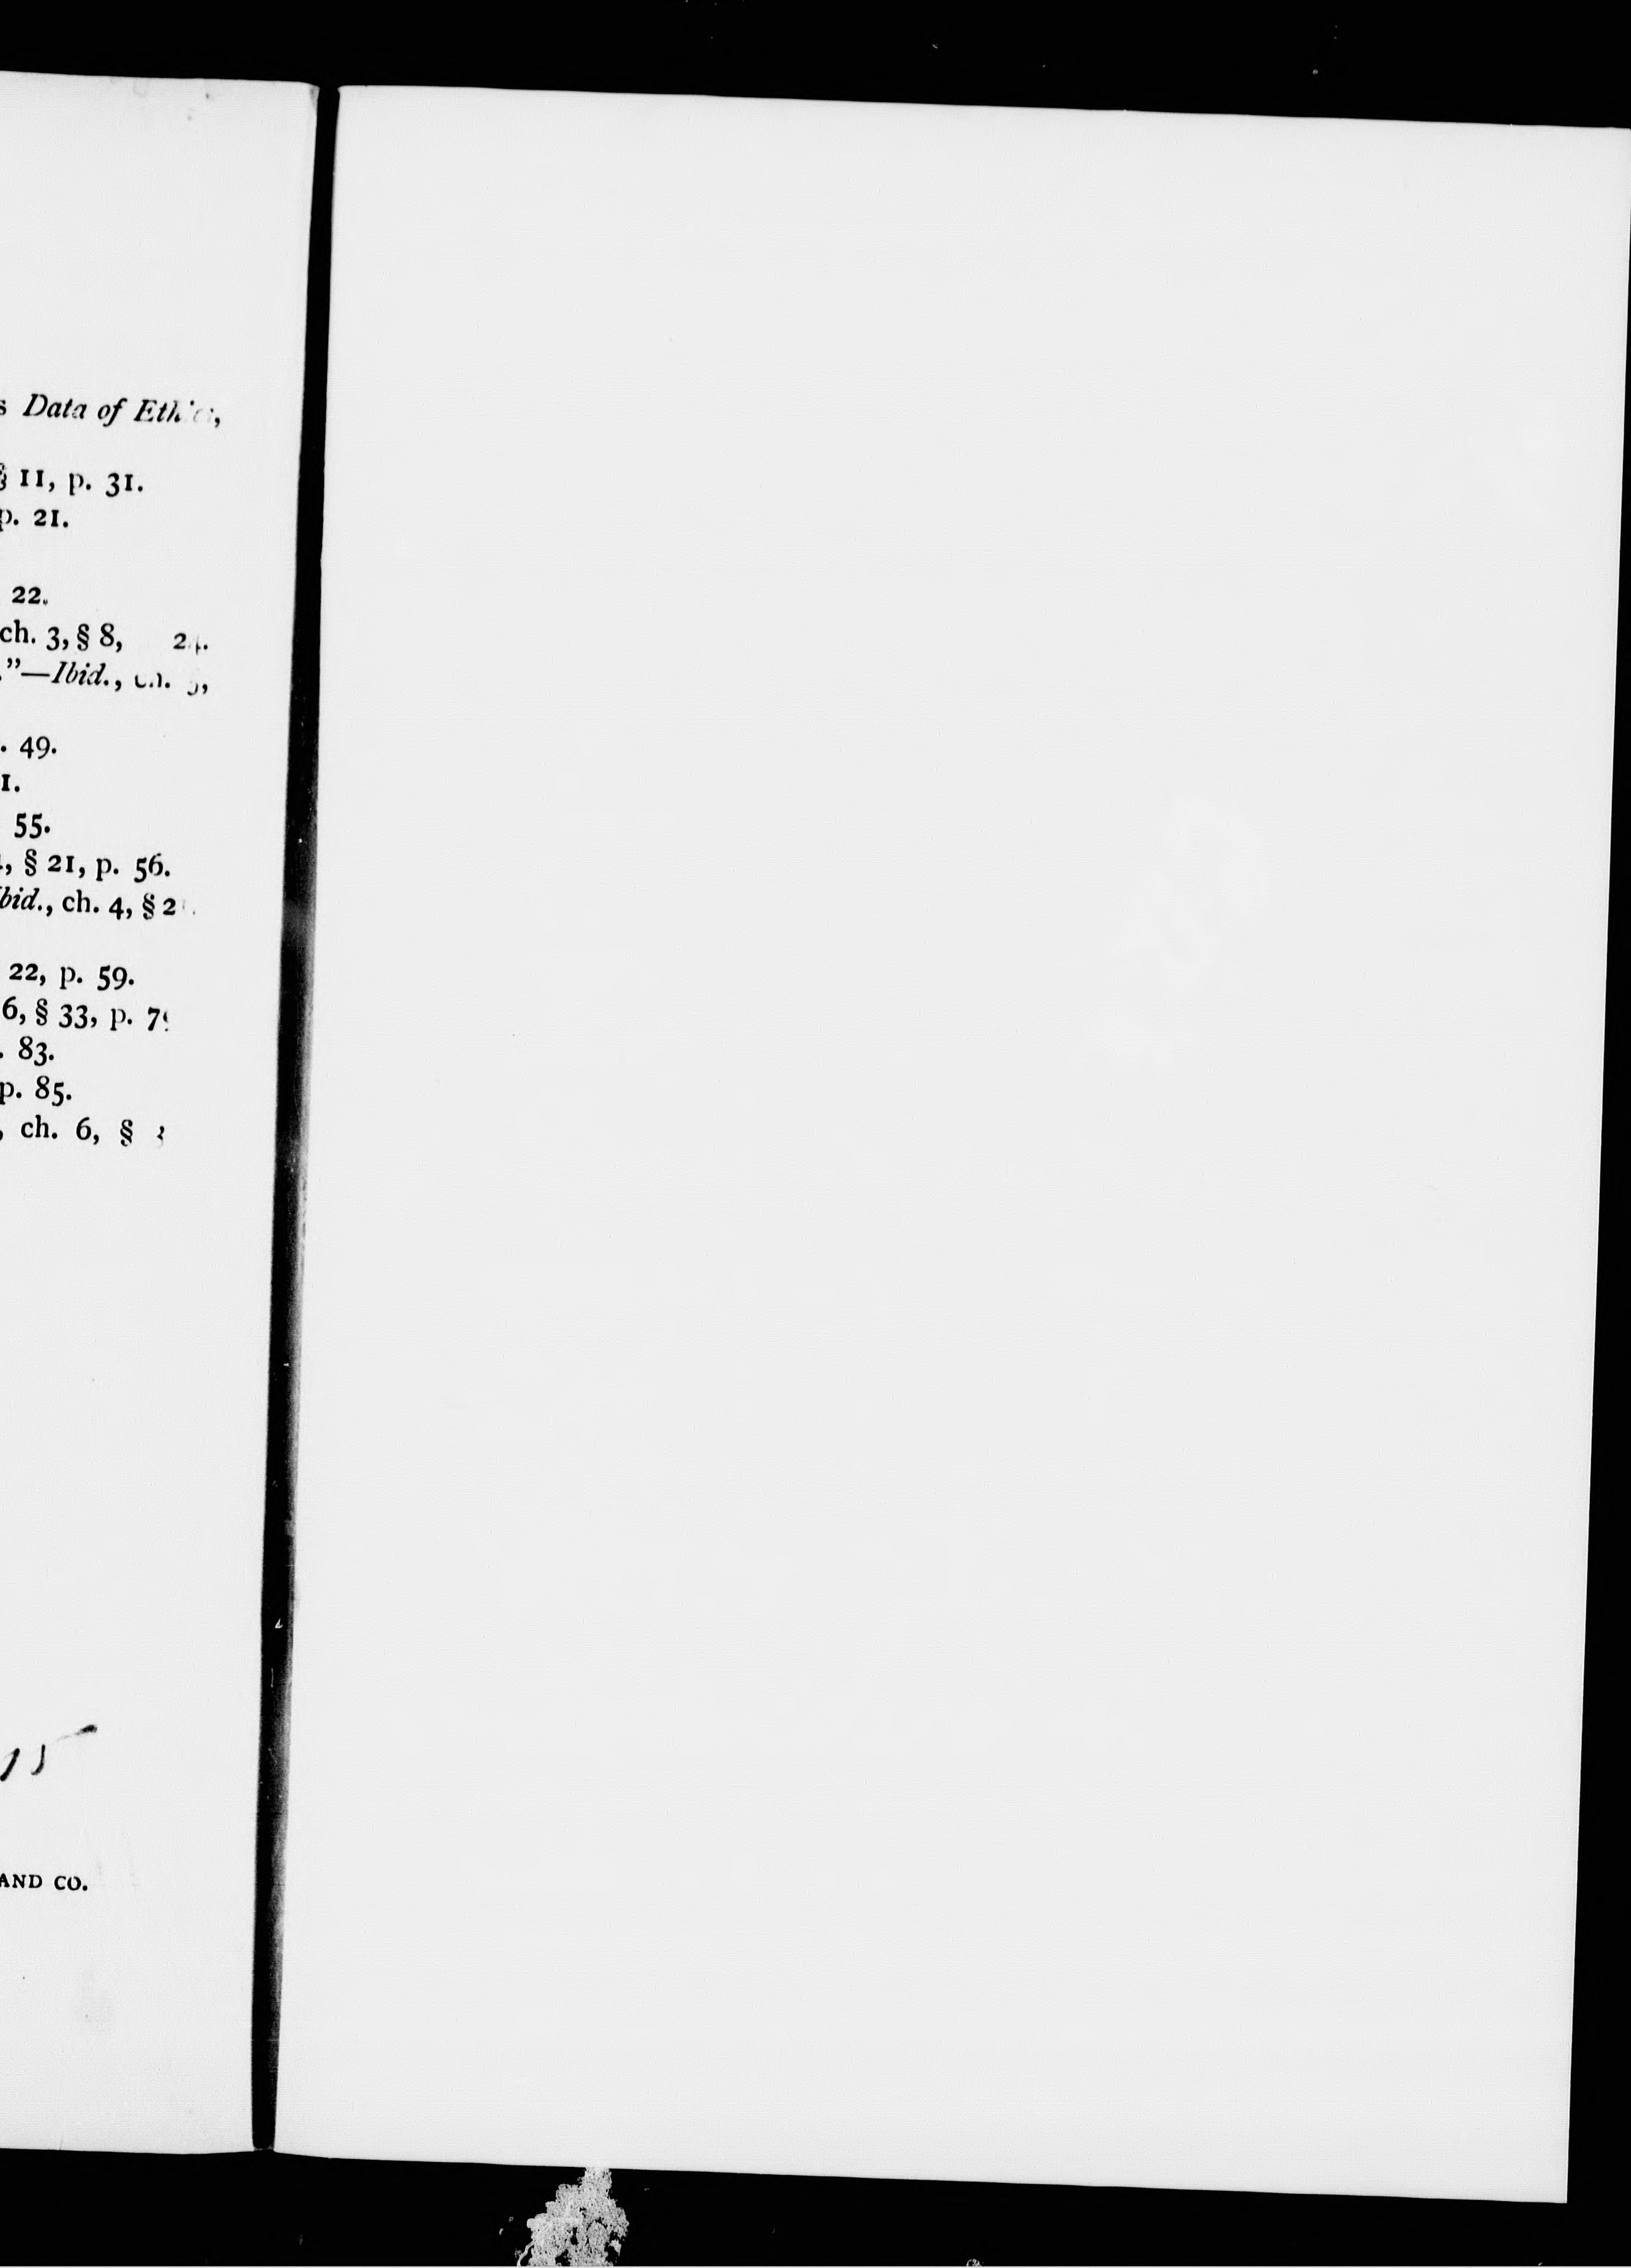 s Data of
§ 11, p. 31.
p. 21.
22.
ch. 3, § 8,
."—Ibid.,
. 49.
1.
55.
, § 21, p. 56.
bid., ch. 4, § 2
22, p. 59.
6, § 33, p. 7
. 83.
p. 85.
, ch. 6, §
15
AND CO.